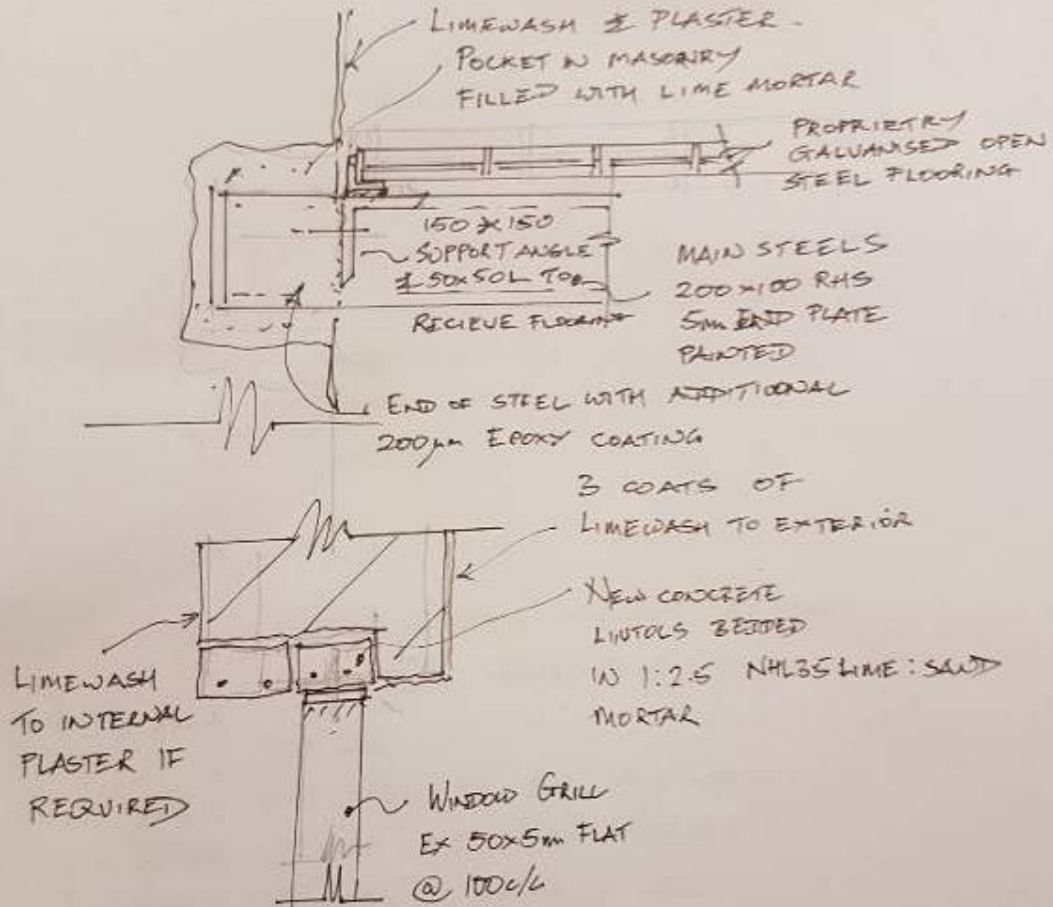 LIMEWASH & PLASTER
POCKET IN MASONRY
FILLED WITH LIME MORTAR
PROPRIETRY
GALVANISED OPEN
STEEL FLOORING
150 x 150
SUPPORT ANGLE
& 50x50L TO
RECIEVE FLOORING
MAIN STEELS
200x100 RHS
5mm END PLATE
PAINTED
END OF STEEL WITH ADDITIONAL
200µm EPOXY COATING
3 COATS OF
LIMEWASH TO EXTERIOR
NEW CONCRETE
LINTOLS BEDDED
IN 1:2.5 NHL35 LIME: SAND
MORTAR
LIMEWASH
TO INTERNAL
PLASTER IF
REQUIRED
WINDOW GRILL
EX 50x5mm FLAT
@ 100c/c